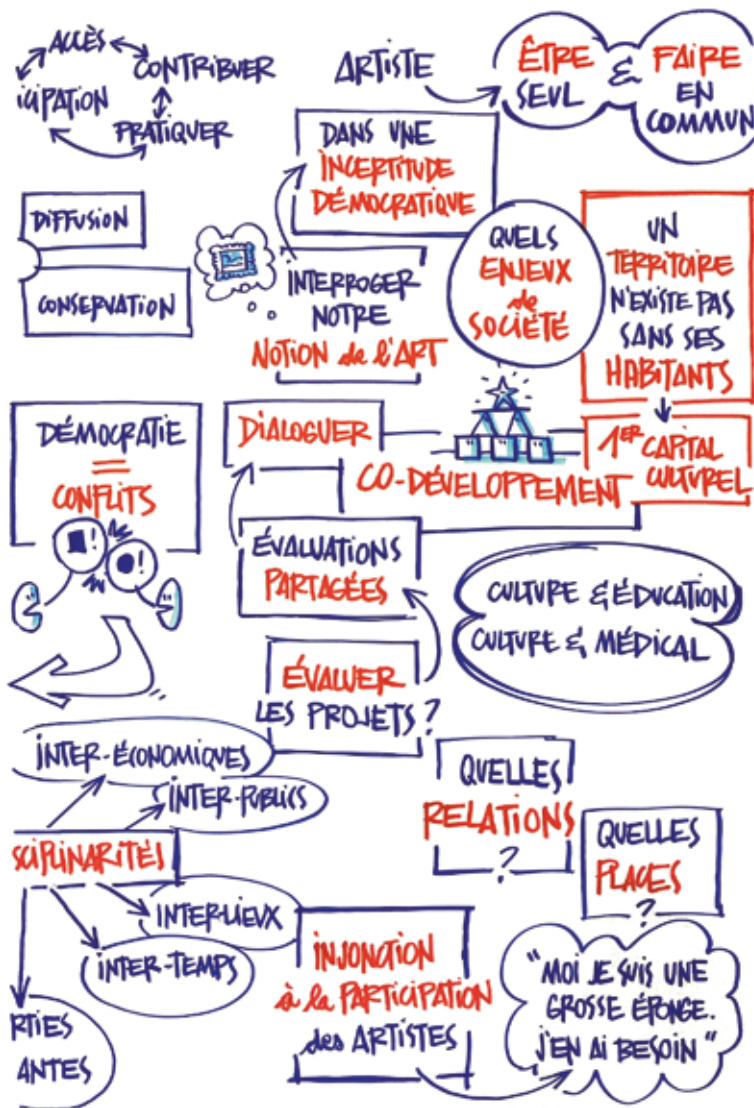 ACCÈS
CONTRIBUER
ICIPATION
PRATIQUER
ARTISTE
ÊTRE
SEUL
&
FAIRE
EN
COMMUN
DANS UNE
INCERTITUDE
DÉMOCRATIQUE
DIFFUSION
CONSERVATION
INTERROGER
NOTRE
NOTION de l'ART
QUELS
ENJEUX
de
SOCIÉTÉ
UN
TERRITOIRE
N'EXISTE PAS
SANS SES
HABITANTS
1ER CAPITAL
CULTUREL
DIALOGUER
CO-DÉVELOPPEMENT
DÉMOCRATIE
=
CONFLITS
!
!
ÉVALUATIONS
PARTAGÉES
CULTURE & ÉDUCATION
CULTURE & MÉDICAL
ÉVALUER
LES PROJETS ?
INTER-ÉCONOMIQUES
INTER-PUBLICS
SCIPLINARITÉS
INTER-LIEUX
INTER-TEMPS
RTIES
ANTES
QUELLES
RELATIONS
?
QUELLES
PLACES
?
INJONCTION
à la PARTICIPATION
des ARTISTES
"MOI JE SUIS UNE
GROSSE ÉPONGE.
J'EN AI BESOIN"